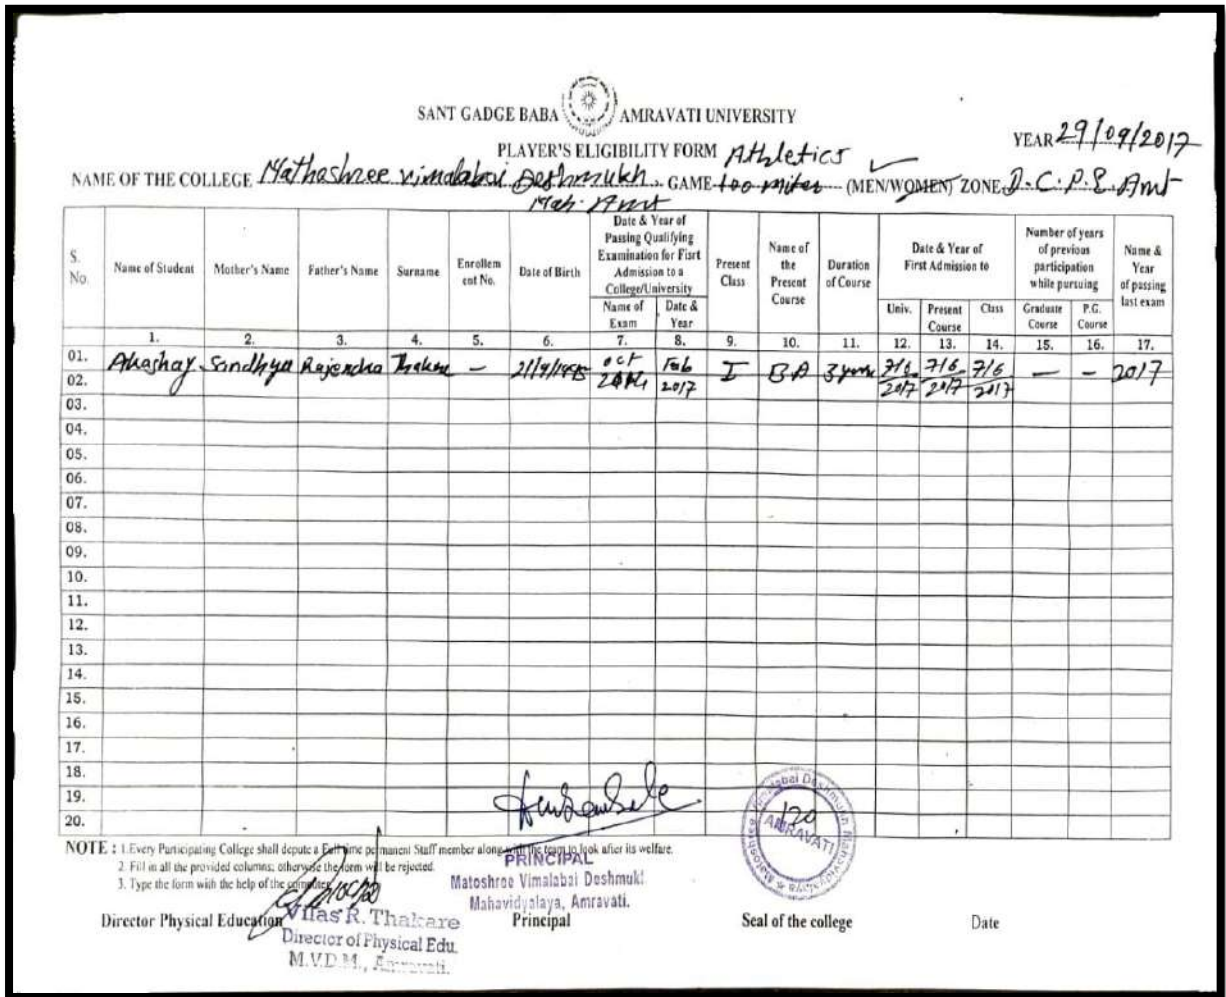 SANT GADGE BABA AMRAVATI UNIVERSITY
PLAYER'S ELIGIBILITY FORM Athletics
YEAR 29/09/2017
NAME OF THE COLLEGE Mathoshree vimalabai Deshmukh GAME 100 miter (MEN/WOMEN) ZONE D.C.P.E. Amt
Mah. Amt
S. No.
Name of Student
Mother's Name
Father's Name
Surname
Enrollem ent No.
Date of Birth
Date & Year of Passing Qualifying Examination for Fisrt Admission to a College/University
Name of Exam
Date & Year
Present Class
Name of the Present Course
Duration of Course
Date & Year of First Admission to
Univ.
Present Course
Class
Number of years of previous participation while pursuing
Graduate Course
P.G. Course
Name & Year of passing last exam
1. 2. 3. 4. 5. 6. 7. 8. 9. 10. 11. 12. 13. 14. 15. 16. 17.
01. Akashay Sandhya Rajendra Thakre - oct Feb 2017 I BA 3 year 7/6 2017 7/6 2017 7/6 2017 - - 2017
02.
03.
04.
05.
06.
07.
08.
09.
10.
11.
12.
13.
14.
15.
16.
17.
18.
19.
20.
NOTE : 1.Every Participating College shall depute a Full time permanent Staff member along with the team to look after its welfare.
2. Fill in all the provided columns; otherwise the form will be rejected.
3. Type the form with the help of the computer.
PRINCIPAL
Matoshree Vimalabai Deshmukh
Mahavidyalaya, Amravati.
Matoshree Vimalabai Deshmukh Mahavidyalaya
120
AMRAVATI
Director Physical Education
Vilas R. Thakare
Director of Physical Edu.
M.V.D.M., Amravati.
Principal
Seal of the college
Date